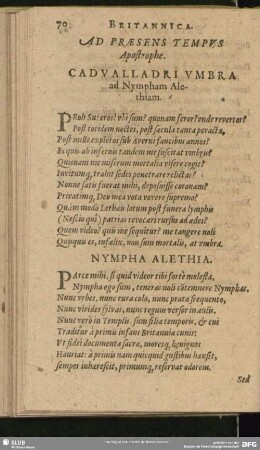 70 BRITANNICA.
AD PRÆSENS TEMPVS
Apostrophe.
CADVALLADRI VMBRA
ad Nympham Ale-
thiam.
PRoh Superos! vbi sum? quonam feror? vnde revertor?
Post totidem noctes, post sæcula tanta peracta,
Post mille expletos sub Averni faucibus annos?
Ecquis ab infernis tandem me suscitat vmbris?
Quisnam me miserum mortalia visere cogit?
Invitumq; trahit sedes penetrare relictas?
Nonne satis fuerat mihi, deposuisse coronam?
Privatimq; Deo mea vota vovere supremo?
Quàm modo Lethæi latum post funera lymphis
(Nescio quî) patrias revocari rursus ad ædes?
Quem video? quis me sequitur? me tangere noli
Quisquis es, infælix, non sum mortalis, at vmbra.
NYMPHA ALETHIA.
PArce mihi, si quid videor tibi fortè molesta,
Nympha ego sum, teneras noli cōtemnere Nymphas.
Nunc vrbes, nunc rura colo, nunc prata frequento,
Nunc virides sylvas, nunc regum versor in aulis.
Nunc verò in Templis. sum filia temporis, & cui
Traditur à primis infans Britannia cunis:
Vt sidei documenta sacræ, moresq; benignos
Hauriat: à primis nam quicquid gustibus hausit,
Semper inhærescit, primumq; reservat odorem.
Sed
SLUB
DFG